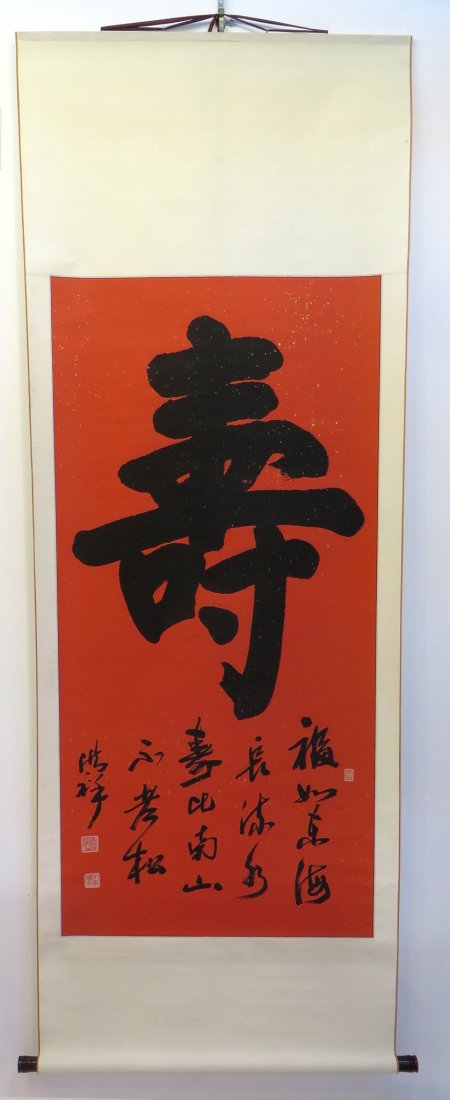 壽
福如東海
長流水
壽比南山
不老松